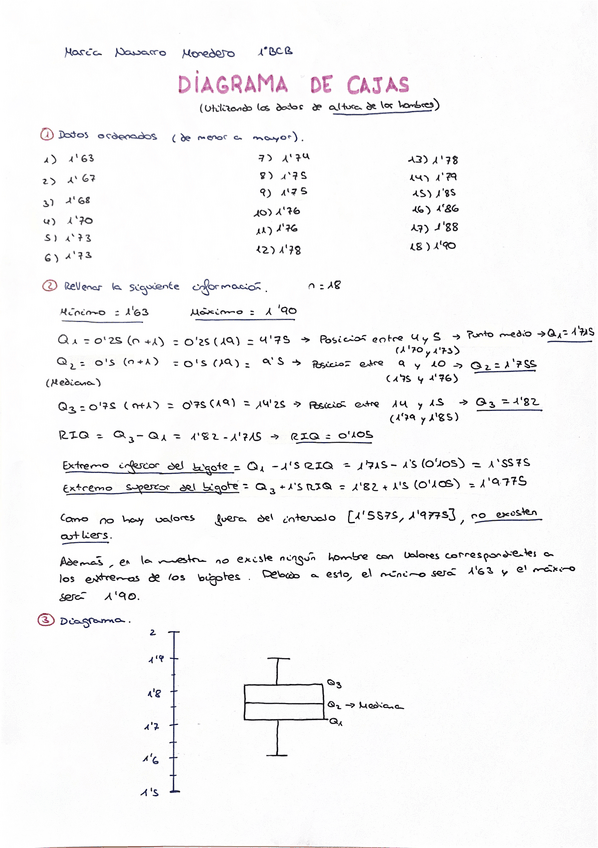 María Navarro Monedero 1ºBCB
DIAGRAMA DE CAJAS
(Utilizando los datos de altura de los hombres)
① Datos ordenados (de menor a mayor).
1) 1'63 7) 1'74 13) 1'78
2) 1'67 8) 1'75 14) 1'79
3) 1'68 9) 1'75 15) 1'85
4) 1'70 10) 1'76 16) 1'86
5) 1'73 11) 1'76 17) 1'88
6) 1'73 12) 1'78 18) 1'90
② Rellenar la siguiente información. n = 18
Mínimo = 1'63 Máximo = 1'90
Q1 = 0'25 (n+1) = 0'25 (19) = 4'75 → Posición entre 4 y 5 → Punto medio → Q1 = 1'715
(1'70 y 1'73)
Q2 = 0'5 (n+1) = 0'5 (19) = 9'5 → Posición entre 9 y 10 → Q2 = 1'755
(Mediana) (1'75 y 1'76)
Q3 = 0'75 (n+1) = 0'75 (19) = 14'25 → Posición entre 14 y 15 → Q3 = 1'82
(1'79 y 1'85)
RIQ = Q3 - Q1 = 1'82 - 1'715 → RIQ = 0'105
Extremo inferior del bigote = Q1 - 1'5 RIQ = 1'715 - 1'5 (0'105) = 1'5575
Extremo superior del bigote = Q3 + 1'5 RIQ = 1'82 + 1'5 (0'105) = 1'9775
Como no hay valores fuera del intervalo [1'5575, 1'9775], no existen
outliers.
Además, en la muestra no existe ningún hombre con valores correspondientes a
los extremos de los bigotes. Debido a esto, el mínimo será 1'63 y el máximo
será 1'90.
③ Diagrama.
2
1'9
Q3
1'8
Q2 → Mediana
Q1
1'7
1'6
1'5